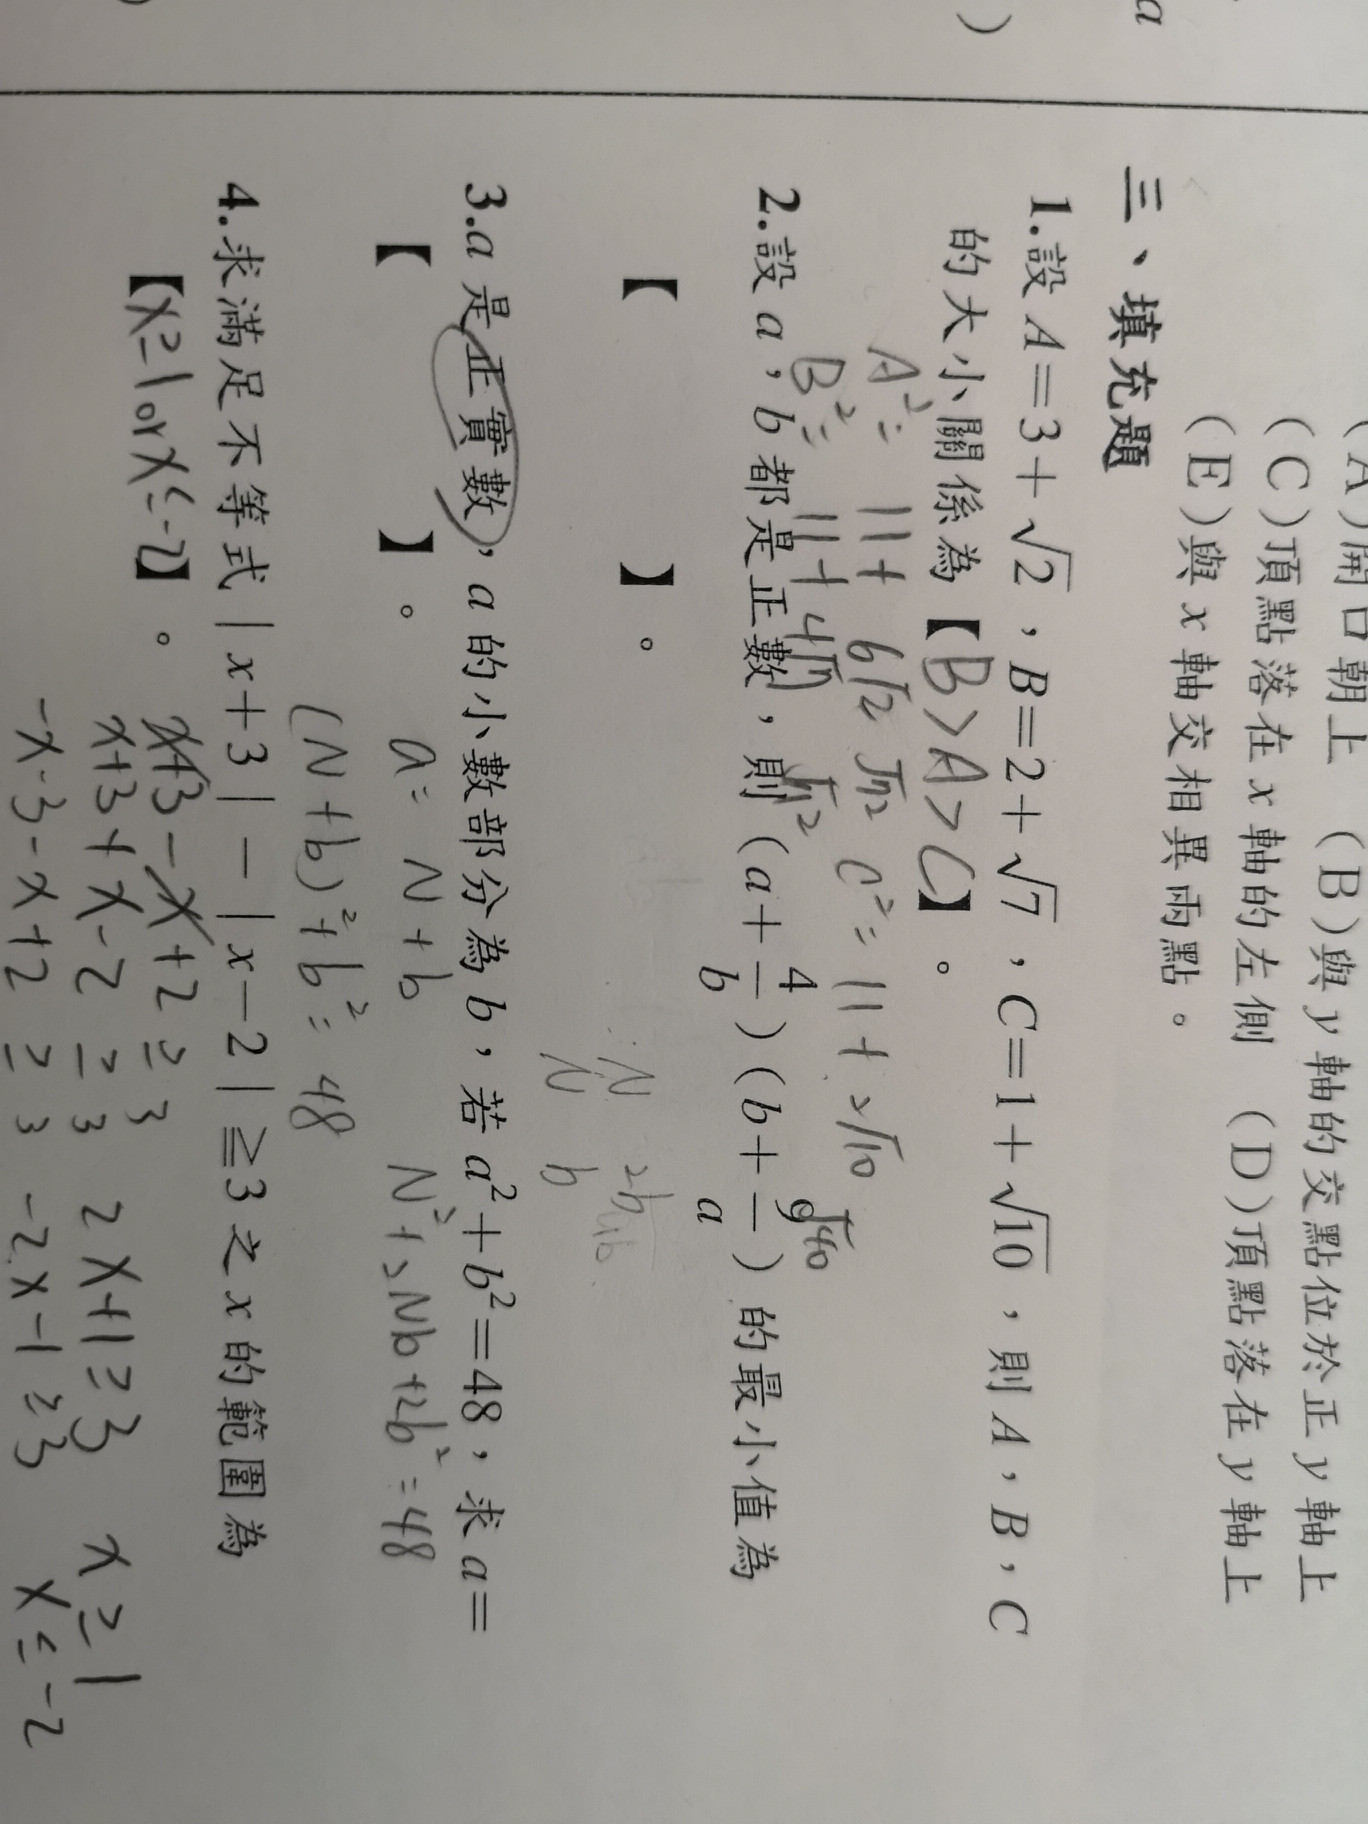 (A)開口朝上 (B)與 y 軸的交點位於正 y 軸上
(C)頂點落在 x 軸的左側 (D)頂點落在 y 軸上
(E)與 x 軸交相異兩點。
三、填充題
1.設 A=3+√2，B=2+√7，C=1+√10，則 A，B，C
的大小關係為【B>A>C】。
A²= 11+ 6√2 √72 C²= 11+2√10
B²= 11+4√7 √112 √40
2.設 a，b 都是正數，則（a+4/b）（b+9/a）的最小值為
【 】。
3.a 是正實數，a 的小數部分為 b，若 a²+b²=48，求 a=
【 】。 a= N+b N²+2Nb+2b²=48
(N+b)²+b²=48
4.求滿足不等式｜x+3｜－｜x－2｜≧3 之 x 的範圍為
【x≥1 or x≤-2】。 x+3-x+2≥3
x+3+x-2≥3 2x+1≥3 x≥1
-x-3-x+2≥3 -2x-1≥3 x≤-2